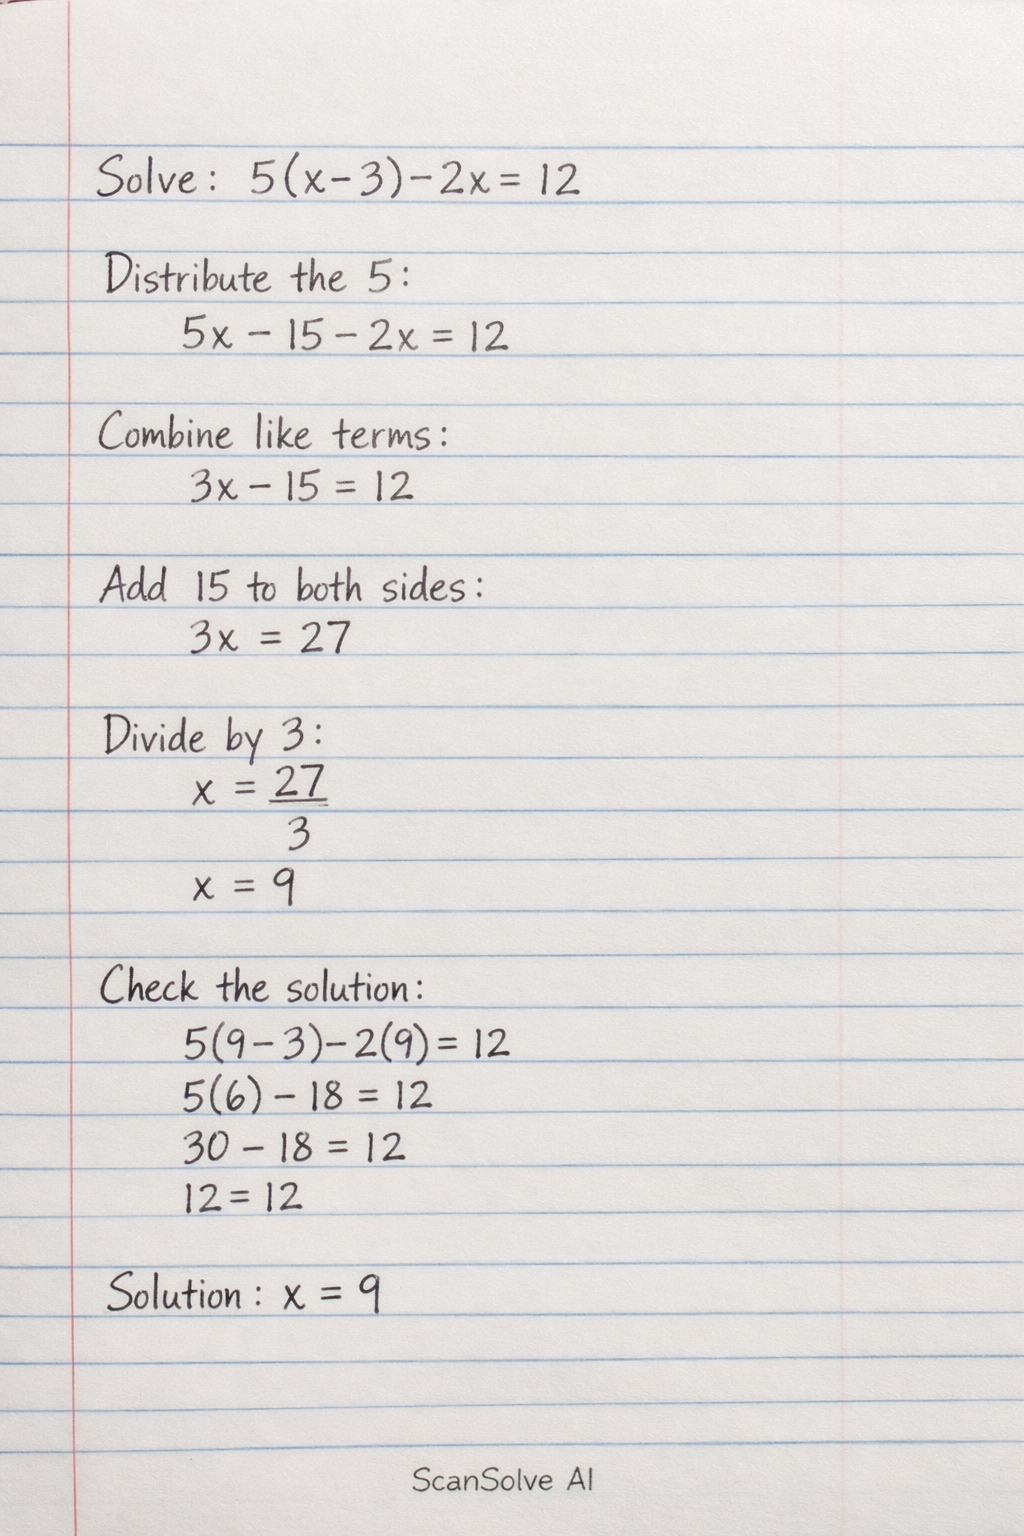 Solve: 5(x-3)-2x = 12
Distribute the 5:
5x - 15 - 2x = 12
Combine like terms:
3x - 15 = 12
Add 15 to both sides:
3x = 27
Divide by 3:
x = 27
3
x = 9
Check the solution:
5(9-3)-2(9) = 12
5(6) - 18 = 12
30 - 18 = 12
12 = 12
Solution: x = 9
ScanSolve AI